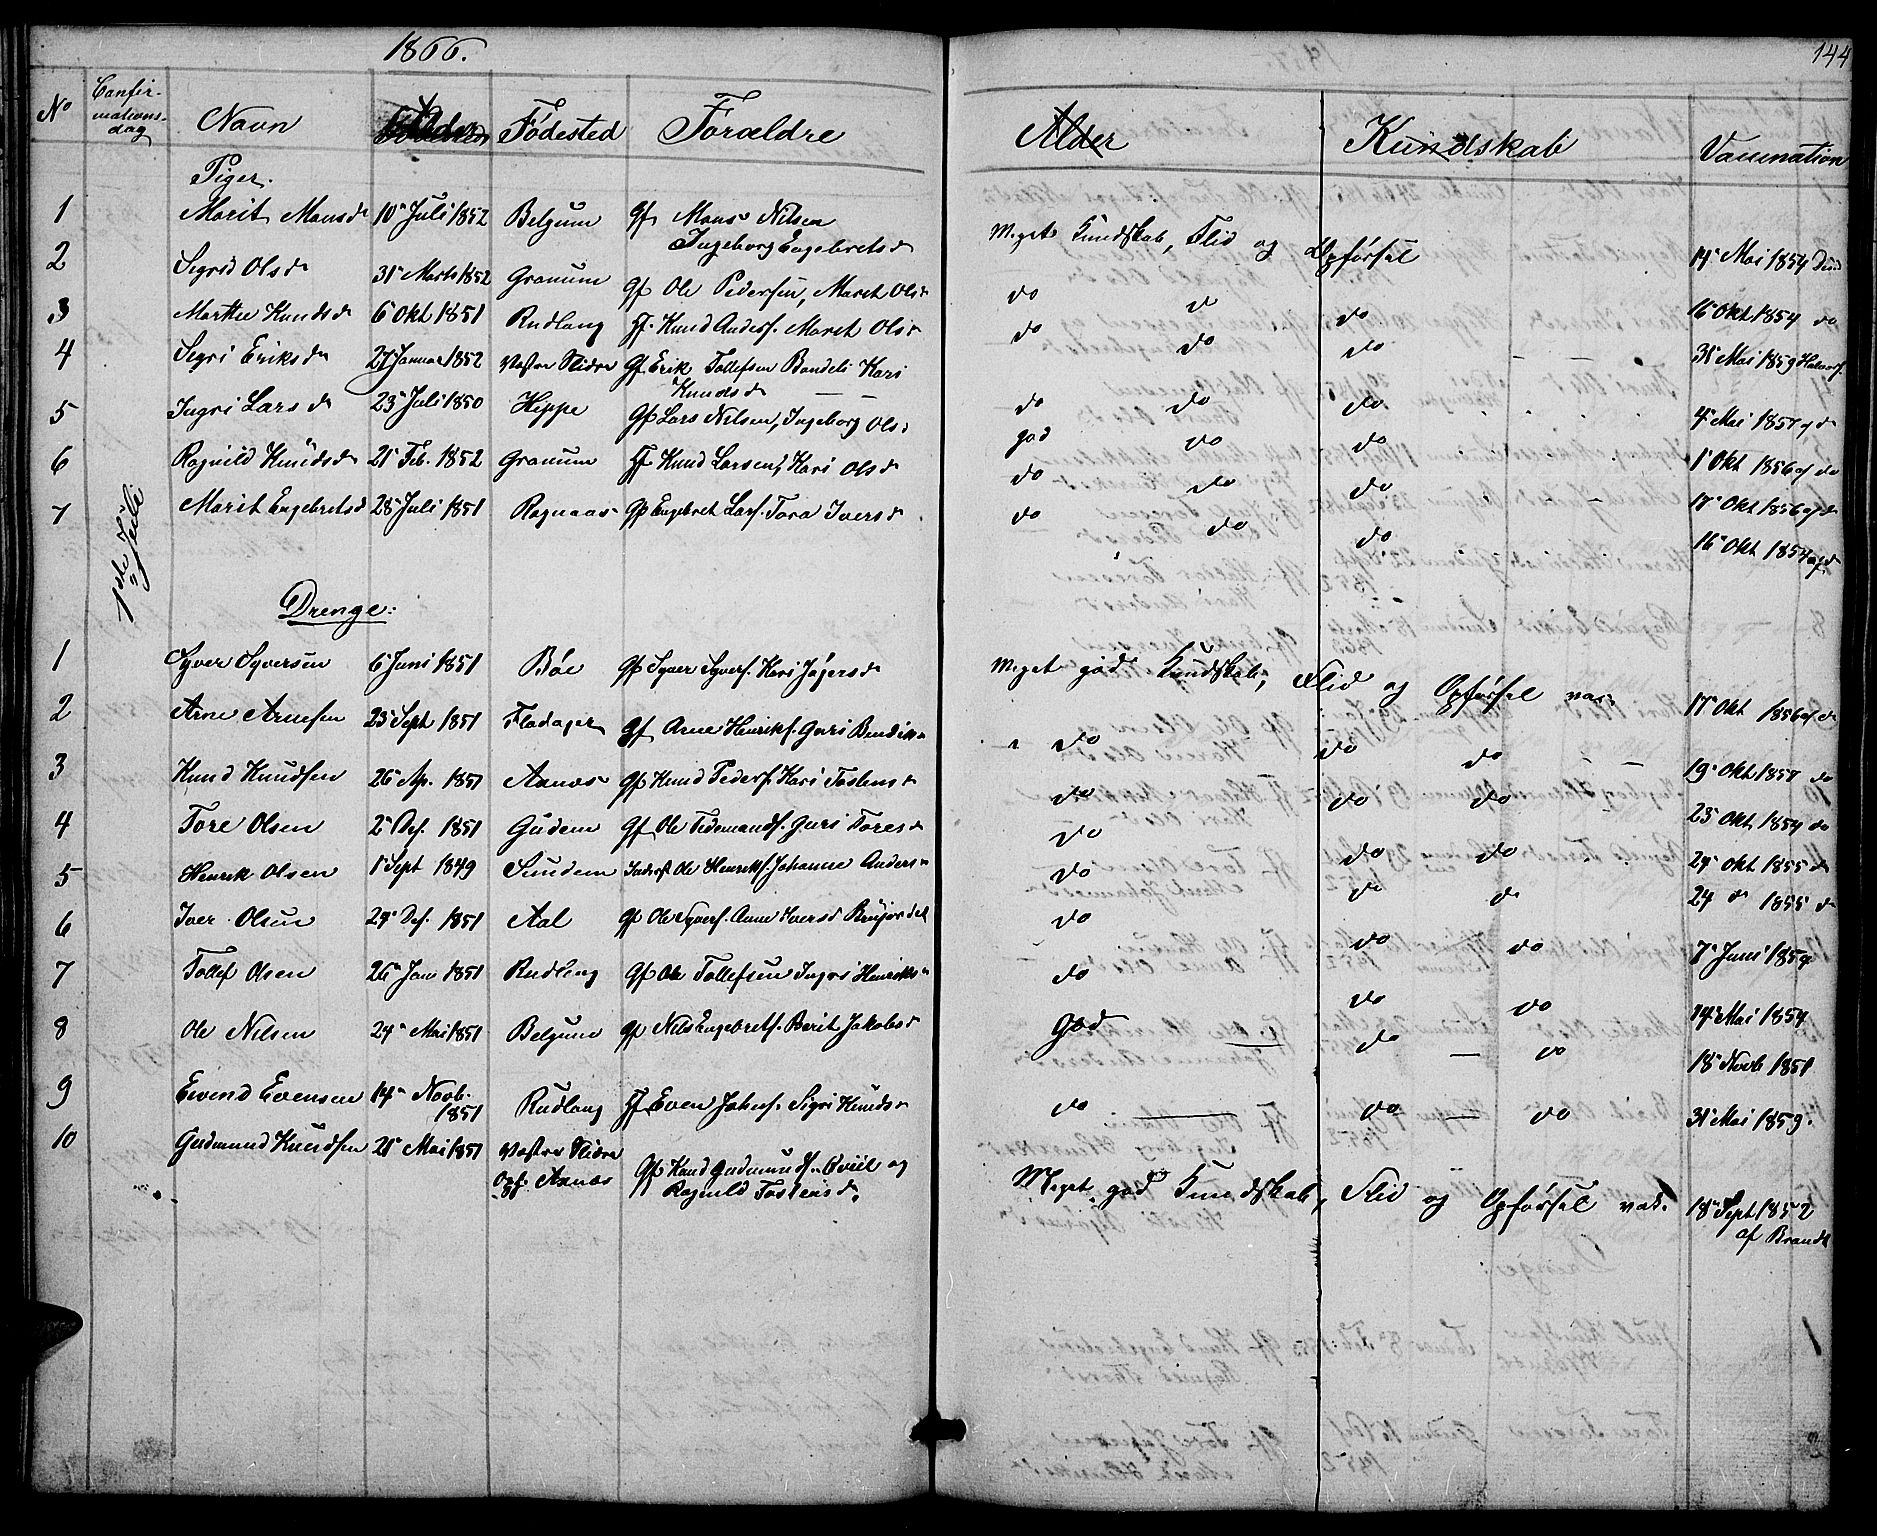 1866.
144
No Confir-
mations-
dag Navn Alder Fødested Forældre Alder Kundskab Vaccination
Piger.
1 Marit Monsd 10 Juli 1852 Belgum Gf Mons Nilsen
Ingeborg Engebretsd Meget Kundskab, Flid og Opførsel 14 Mai 1854
2 Sigrid Olsd 31 Marts 1852 Granum Gf Ole Pedersen, Maret Olsd do do do 16 Okt 1854 do
3 Marthe Knudsd 6 Okt 1851 Rudlang Gf. Knud Andersf. Maret Olsd do do do 31 Mai 1859
4 Sigri Eriksd 27 Januar 1852 Vestre Slidre Gf Erik Tollefsen Kari
Knudsd do do do 4 Mai 1857 af do
5 Ingri Larsd 23 Juli 1850 Hippe Gf Lars Nilsen, Ingeborg Olsd god do do 1 Okt 1856 af do
6 Ragnild Knudsd 21 Feb. 1852 Granum Gf Knud Larsen, Kari Olsd do do do 17 Okt 1856 af do
7 Marit Engebretsd 28 Juli 1851 Rognaas Gf Engebret Larsf. Tora Iversd do do do 16 Okt 1854 af do
1ste Juli
Drenge:
1 Syver Syversen 6 Juni 1851 Bøe Gf Syver Syversf. Kari Meget god Kundskab, Flid og Opførsel var 17 Okt 1856 af do
2 Arne Arnesen 23 Sept 1851 Fladager Gf Arne Henriksf. Guri do do do 19 Okt 1857 do
3 Knud Knudsen 26 Ap. 1851 Axnes Gf Knud Pedersf. Kari do do do 25 Okt 1854 do
4 Tore Olsen 2 Des. 1851 Gudem Gf Ole Tidemandsf. Guri Toresd do do do 24 Okt 1855 do
5 Henrik Olsen 1 Sept 1849 Sundem Ole Henriksf. Johanne Andersd do do do 24 do 1855 do
6 Iver Olsen 24 Des. 1851 Aal Gf Ole Syversf. Anne Iversd do do do 7 Juni 1859
7 Tollef Olsen 26 Jan 1851 Rudlang Gf Ole Tollefsen Ingri Henriksd do do do 14 Mai 1854
8 Ole Nilsen 24 Mai 1851 Belgum Gf Nils Engebretsf. Berit Jakobsd God do do 18 Novb 1851
9 Eivind Evensen 14 Novb.
1851 Rudlang Gf Even Johnsf. Sigri Knudsd do do do 31 Mai 1859.
10 Gudmund Knudsen 21 Mai 1851 Vestre Slidre
Opf. Axnes Gf Knud Gudmundsf. Qviil og
Ragnild Tostensd. Meget god Kundskab, Flid og Opførsel var. 18 Sept 1852
af Brandt